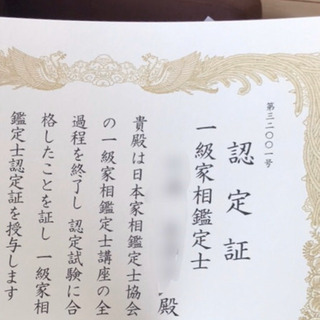 第三二〇一号
認定証
一級家相鑑定士
殿
貴殿は日本家相鑑定士協会
の一級家相鑑定士講座の全
過程を終了し 認定試験に合
格したことを証し 一級家相
鑑定士認定証を授与します